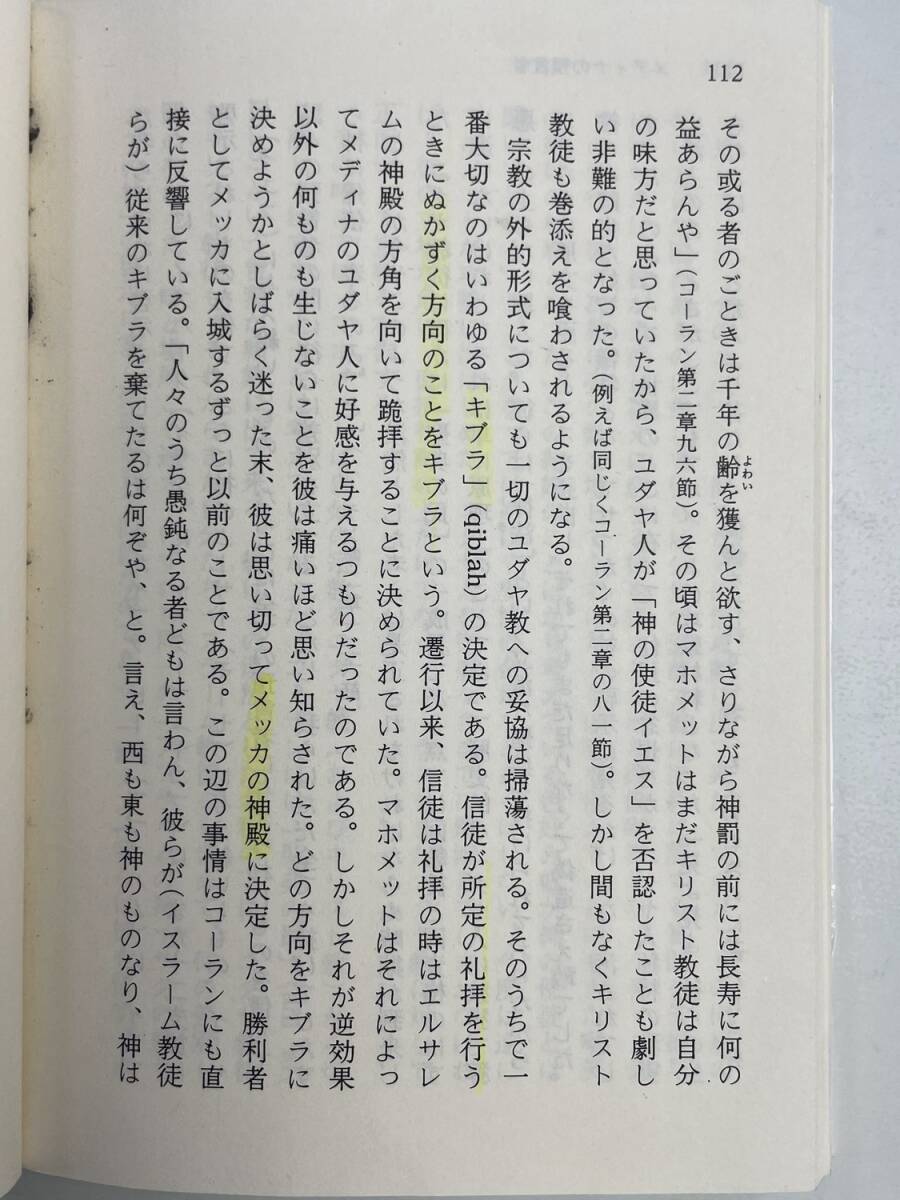 112
その或る者のごときは千年の齢を獲んと欲す、さりながら神罰の前には長寿に何の
よわい
益あらんや」(コーラン第二章九六節)。その頃はマホメットはまだキリスト教徒は自分
の味方だと思っていたから、ユダヤ人が「神の使徒イエス」を否認したことも劇し
い非難の的となった。(例えば同じくコーラン第二章の八一節)。しかし間もなくキリスト
教徒も巻添えを喰わされるようになる。
宗教の外的形式についても一切のユダヤ教への妥協は掃蕩される。そのうちで一
番大切なのはいわゆる「キブラ」(qiblah)の決定である。信徒が所定の礼拝を行う
ときにぬかずく方向のことをキブラという。遷行以来、信徒は礼拝の時はエルサレ
ムの神殿の方角を向いて跪拝することに決められていた。マホメットはそれによっ
てメディナのユダヤ人に好感を与えるつもりだったのである。しかしそれが逆効果
以外の何ものも生じないことを彼は痛いほど思い知らされた。どの方向をキブラに
決めようかとしばらく迷った末、彼は思い切ってメッカの神殿に決定した。勝利者
としてメッカに入城するずっと以前のことである。この辺の事情はコーランにも直
接に反響している。「人々のうち愚鈍なる者どもは言わん、彼らが(イスラーム教徒
らが)従来のキブラを棄てたるは何ぞや、と。言え、西も東も神のものなり、神は